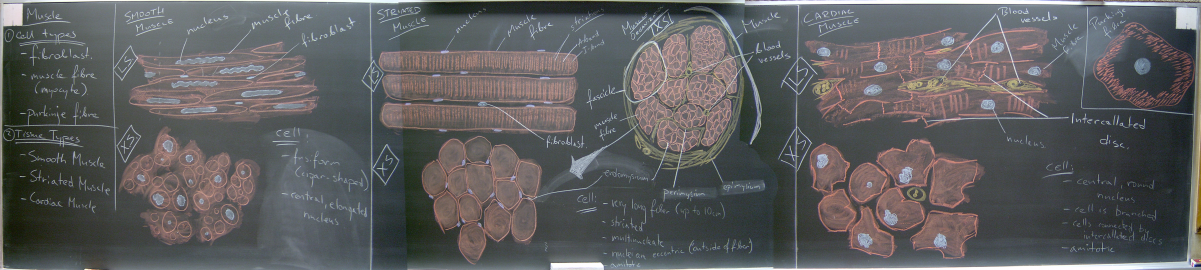 Muscle
① Cell types
- fibroblast.
- muscle fibre
(myocyte)
- purkinje fibre
② Tissue Types
- Smooth Muscle
- Striated Muscle
- Cardiac Muscle
SMOOTH
MUSCLE
nucleus
muscle
fibre
fibroblast
LS
XS
cell:
- fusiform
(cigar-shaped)
- central, elongated
nucleus
STRIATED
MUSCLE
nucleus
muscle
fibre
striations
LS
fibroblast.
XS
Muscle
(XS)
Muscle
Blood
vessels
fascicle
muscle
fibre
endomysium
perimysium
epimysium
cell:
- very long fiber (up to 10cm)
- striated
- multinucleate
- nuclei on eccentric (outside of fiber)
- amitotic
CARDIAC
MUSCLE
Blood
vessels
Muscle
fibre
Purkinje
fibre
LS
nucleus
Intercallated
disc.
XS
cell:
- central, round
nucleus
- cell is branched
- cells connected by
intercallated discs
- amitotic